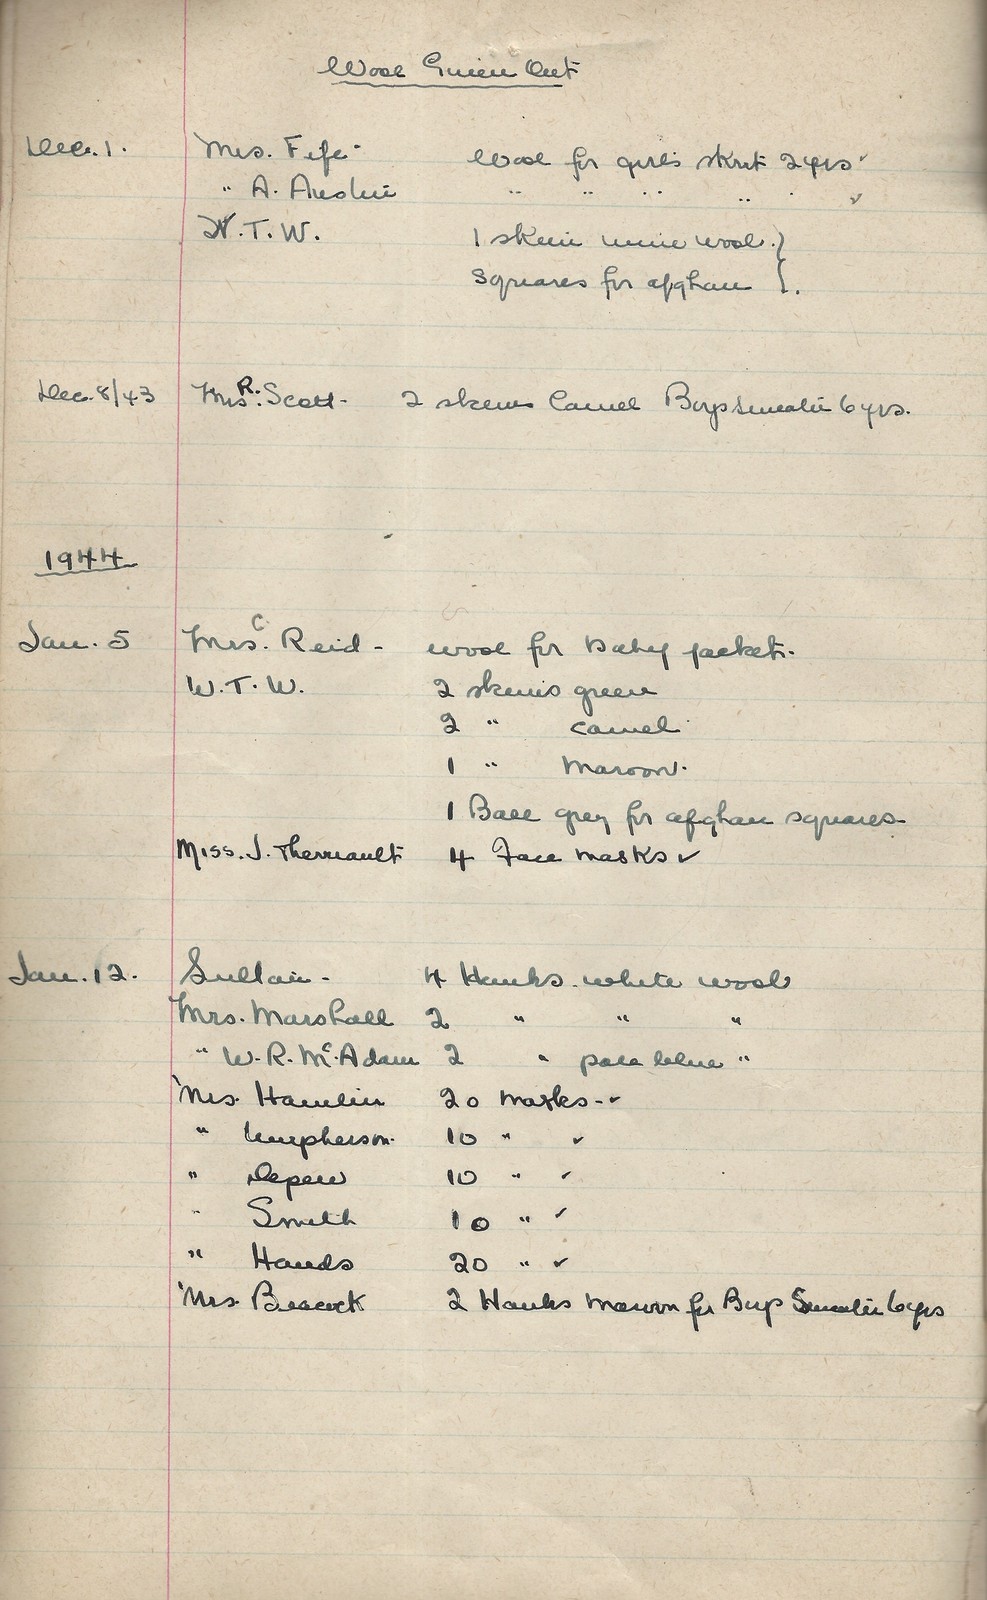 Wool Given Out
Dec. 1. Mrs. Fife - Wool for girl's skirt 2 yrs ✓
" A. Austin " " " " " ✓
W.T.W. 1 skein wine wool. }
squares for afghan }.
Dec. 8/43 Mrs. R. Scott - 2 skeins Camel Boys Sweater 6 yrs.
1944
Jan. 5 Mrs. C. Reid - wool for Baby jacket.
W.T.W. 2 skeins green
2 " camel
1 " Maroon.
1 Ball grey for afghan squares
Miss. J. Therriault 4 Face masks ✓
Jan. 12. - 4 Hanks white wool
Mrs. Marshall 2 " " "
" W.R. McAdam 2 " pale blue "
Mrs. Hamlin 20 masks - ✓
" 10 " ✓
" Depew 10 " ✓
" Smith 10 " ✓
" Hands 20 " ✓
Mrs. 2 Hanks maroon for Boys Sweater 6 yrs